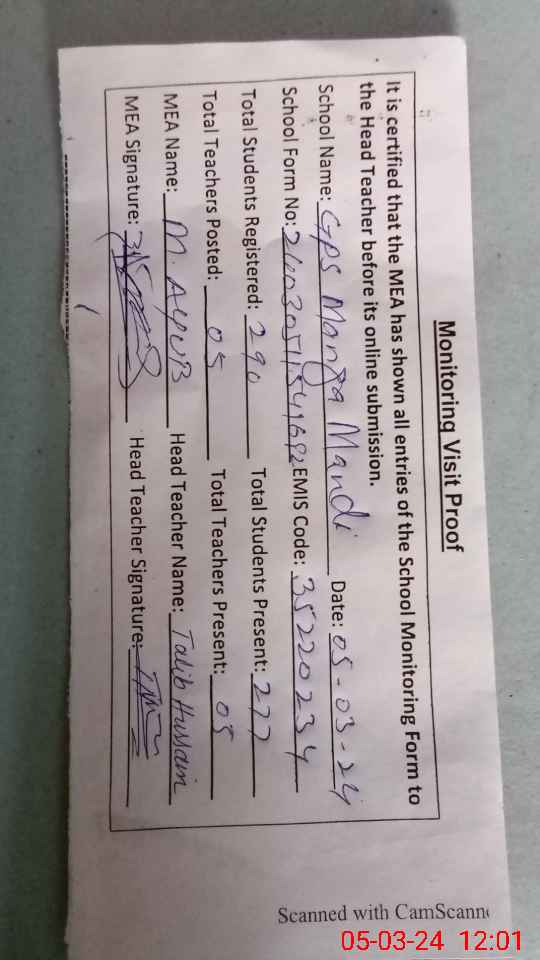 Monitoring Visit Proof
It is certified that the MEA has shown all entries of the School Monitoring Form to
the Head Teacher before its online submission.
School Name: GPS Manga Mandi Date: 05-03-24
School Form No: EMIS Code: 35220234
Total Students Registered: 290 Total Students Present: 277
Total Teachers Posted: 05 Total Teachers Present: 05
MEA Name: M. AYUB Head Teacher Name: Talib Hussain
MEA Signature: Head Teacher Signature:
Scanned with CamScanne
05-03-24 12:01